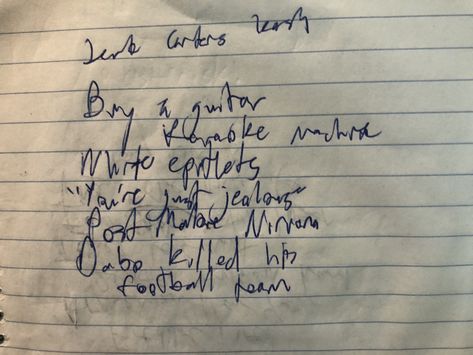 Buy a guitar
Karaoke machine
White epitlets
"You're just jealous"
Post Malone Nirvana
Dabo killed his
football team